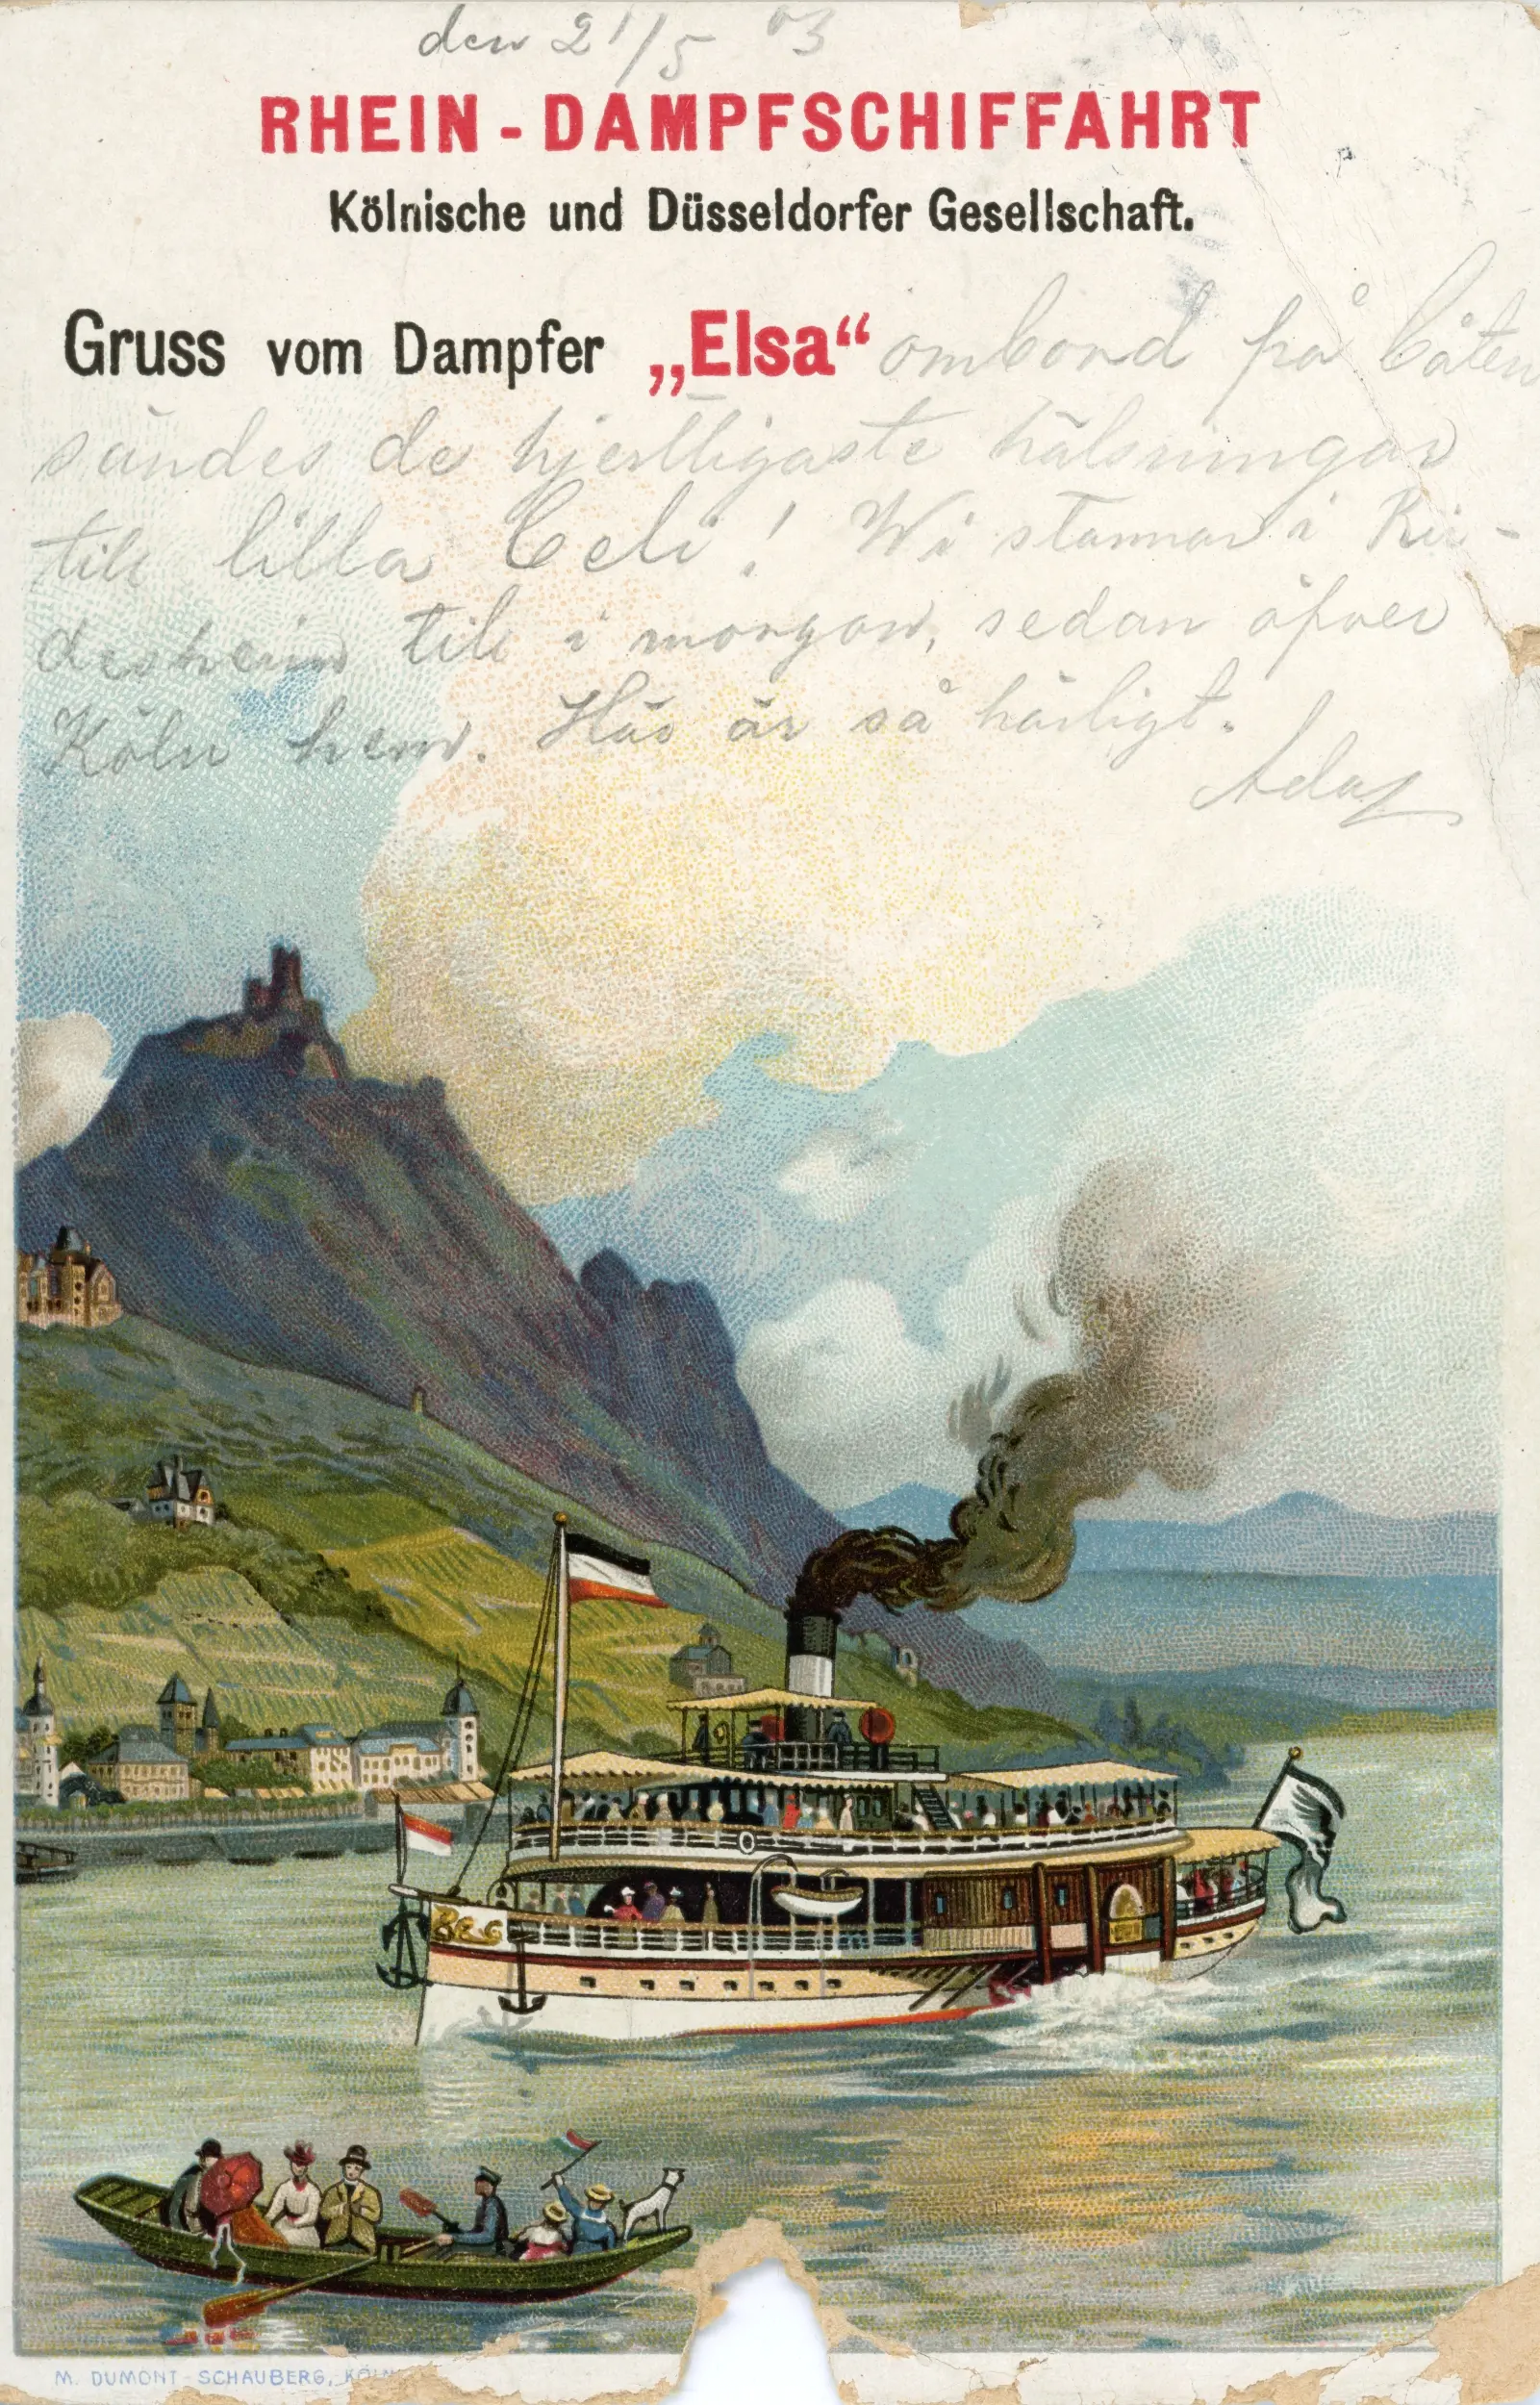 den 21/5 03
RHEIN-DAMPFSCHIFFAHRT
Kölnische und Düsseldorfer Gesellschaft.
Gruss vom Dampfer „Elsa“ ombord på båten
sändes de hjertligaste hälsningar
till lilla Celi! Wi stannar i Rü-
desheim till i morgon, sedan öfver
Köln hem. Här är så härligt.
M. DUMONT-SCHAUBERG, KÖLN